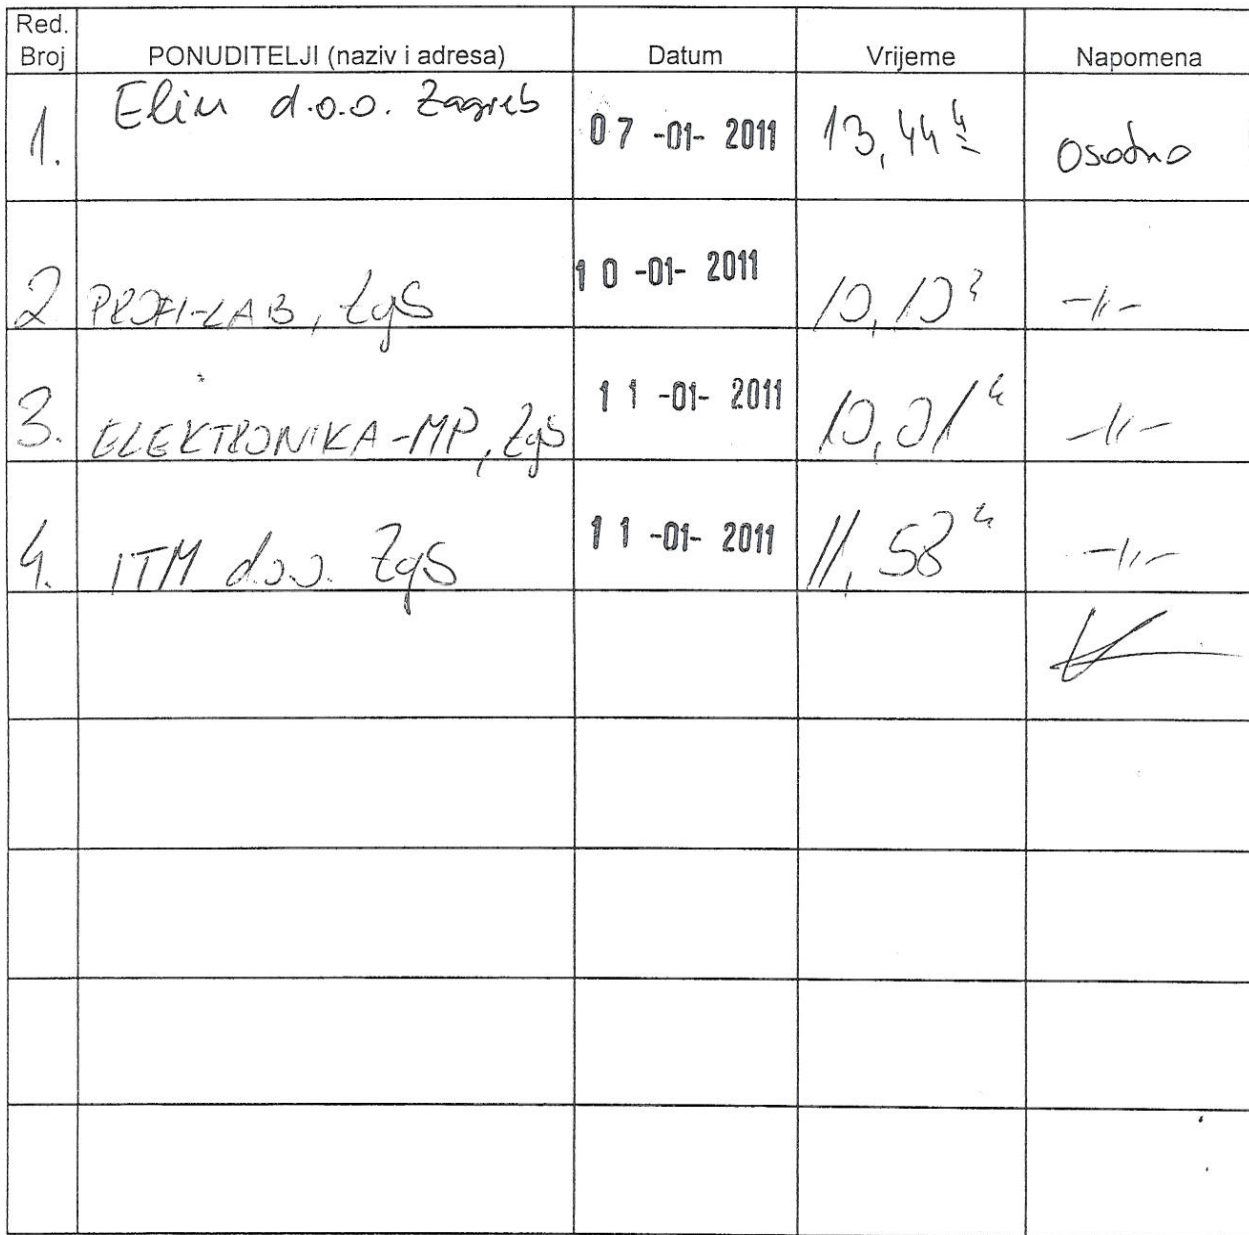 Red. Broj PONUDITELJI (naziv i adresa) Datum Vrijeme Napomena
1. Elim d.o.o. Zagreb 07 -01- 2011 13,44 h Osobno
2 PROFI-LAB, Zgb 10 -01- 2011 10,10 h -11-
3. ELEKTRONIKA-MP, Zgb 11 -01- 2011 10,01 h -11-
4. ITM d.o.o. Zgb 11 -01- 2011 11,58 h -11-